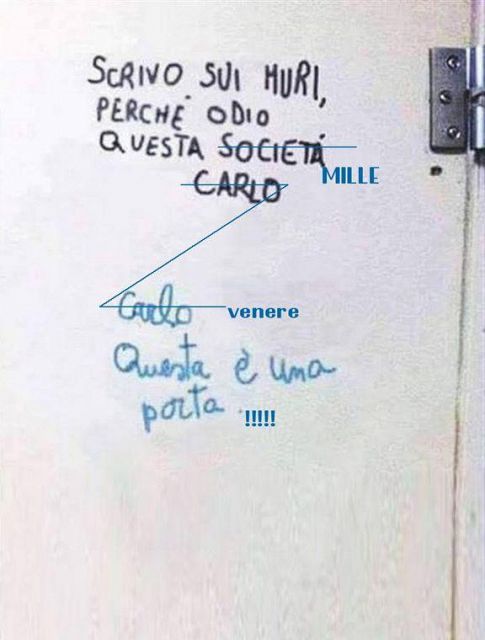 SCRIVO SUI MURI,
PERCHÈ ODIO
QUESTA SOCIETÀ
CARLO
MILLE
Carlo venere
Questa è una
porta. !!!!!